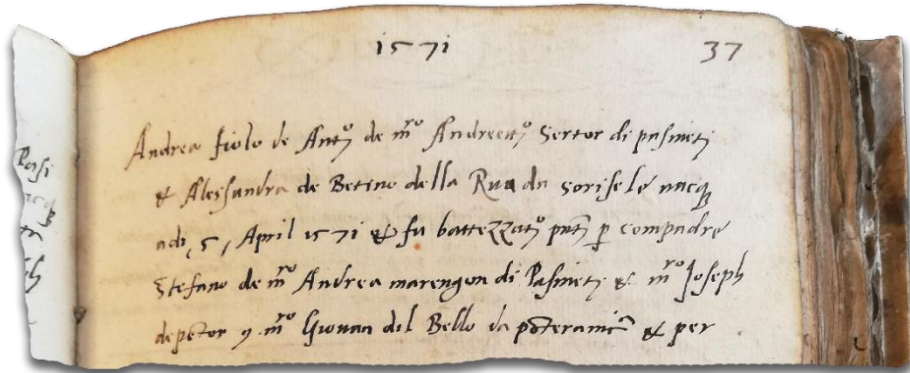 1571 37
Andrea fiolo de Antº de mrº Andreettº Sertor di pasineti
& Alessandra de Betino della Rua da Sorisele nacq
adi, 5, April 1571 & fu battezzatº p compadre
Stefano de mrº Andrea marengon di Pasineti & mrº Joseph
depetor mrº Giovan dil Bello da & per